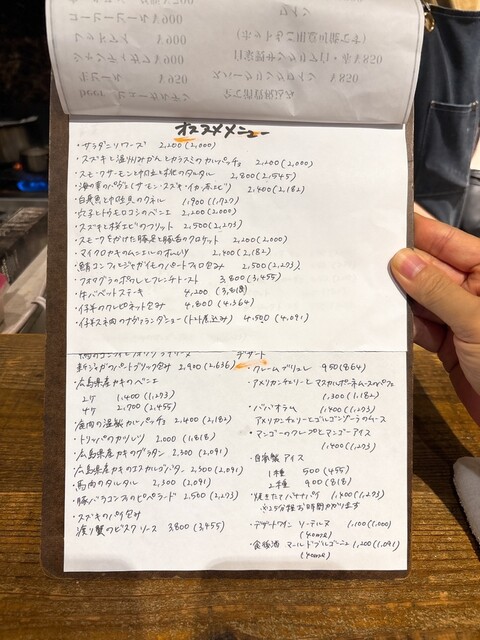 オススメメニュー
・サラダニソワーズ 2,200 (2,000)
・スズキと温州みかんとカラスミのカルパッチョ 2,200 (2,000)
・スモークサーモンと帆立と桃のタルタル 2,800 (2,545)
・海の幸のパヴェ(サーモン・スズキ・イカ・赤エビ) 2,400 (2,182)
・白身魚と小柱貝のクネル 1,900 (1,727)
・穴子とトウモロコシのベニエ 2,200 (2,000)
・スズキと桜エビのフリット 2,500 (2,273)
・スモークをかけた豚足と豚舌のクロケット 2,200 (2,000)
・マイクロカキのムニエルのオムレツ 2,400 (2,182)
・鯖コンフィとジャガイモのパートフィロ包み 2,500 (2,273)
・フォアグラのポワレとフレンチトースト 3,800 (3,455)
・牛バベットステーキ 4,200 (3,818)
・仔羊のクレピネット包み 4,800 (4,364)
・仔羊スネ肉のナヴァランダニョー (トマト煮込み) 4,500 (4,091)
新ジャガのパートブリック包み 2,900 (2,636)
・広島県産カキのベニエ
2ケ 1,400 (1,273)
4ケ 2,700 (2,455)
・鹿肉の温製カルパッチョ 2,400 (2,182)
・トリッパのカツレツ 2,000 (1,818)
・広島県産カキのグラタン 2,300 (2,091)
・広島県産カキのエスカルゴバター 2,300 (2,091)
・馬肉のタルタル 2,300 (2,091)
・豚バラコンフィのピペラード 2,500 (2,273)
・スズキのパイ包み
渡り蟹のビスクソース 3,800 (3,455)
デザート
・クレームブリュレ 950 (864)
・アメリカンチェリーとマスカルポーネムースのパフェ
1,300 (1,182)
・ババオラム 1,400 (1,273)
・アメリカンチェリーとゴルゴンゾーラのムース
・マンゴーのクレープとマンゴーアイス
1,400 (1,273)
・自家製アイス
1種 500 (455)
2種 900 (818)
・焼きたてバナナパイ 1,400 (1,273)
※25分程お時間かかります
・デザートワイン ソーテルヌ 1,100 (1,000)
(40ml)
・食後酒 マールドブルゴーニュ 1,200 (1,091)
(40ml)